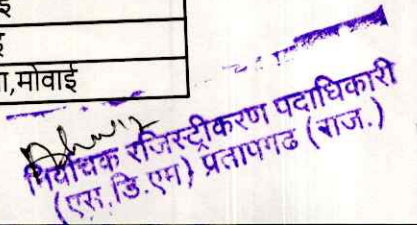 ा,मोवाई
निर्वाचक रजिस्ट्रीकरण पदाधिकारी
(एस.डि.एम) प्रतापगढ (राज.)